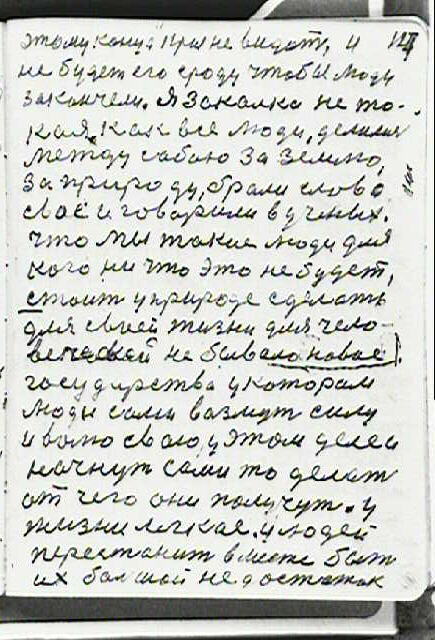 этому конца края не видать, и
не будет его сроду чтобы люди
закончели. Я закалка не та-
кая, как все люди, делили
между сабою за землю,
за природу, брали слова
своё и говорили в ученых.
что мы такие люди для
кого ни что это не будет,
стоит у природе сделать
для своей жизни для чело-
веческой не бывало новое
государства у котором
люди сами возмут силу
и волю свою, у этом деле
начнут сами то делат
от чего они получут. у
жизни легкае. у людей
перестанит вместе быт
их большой недостаток